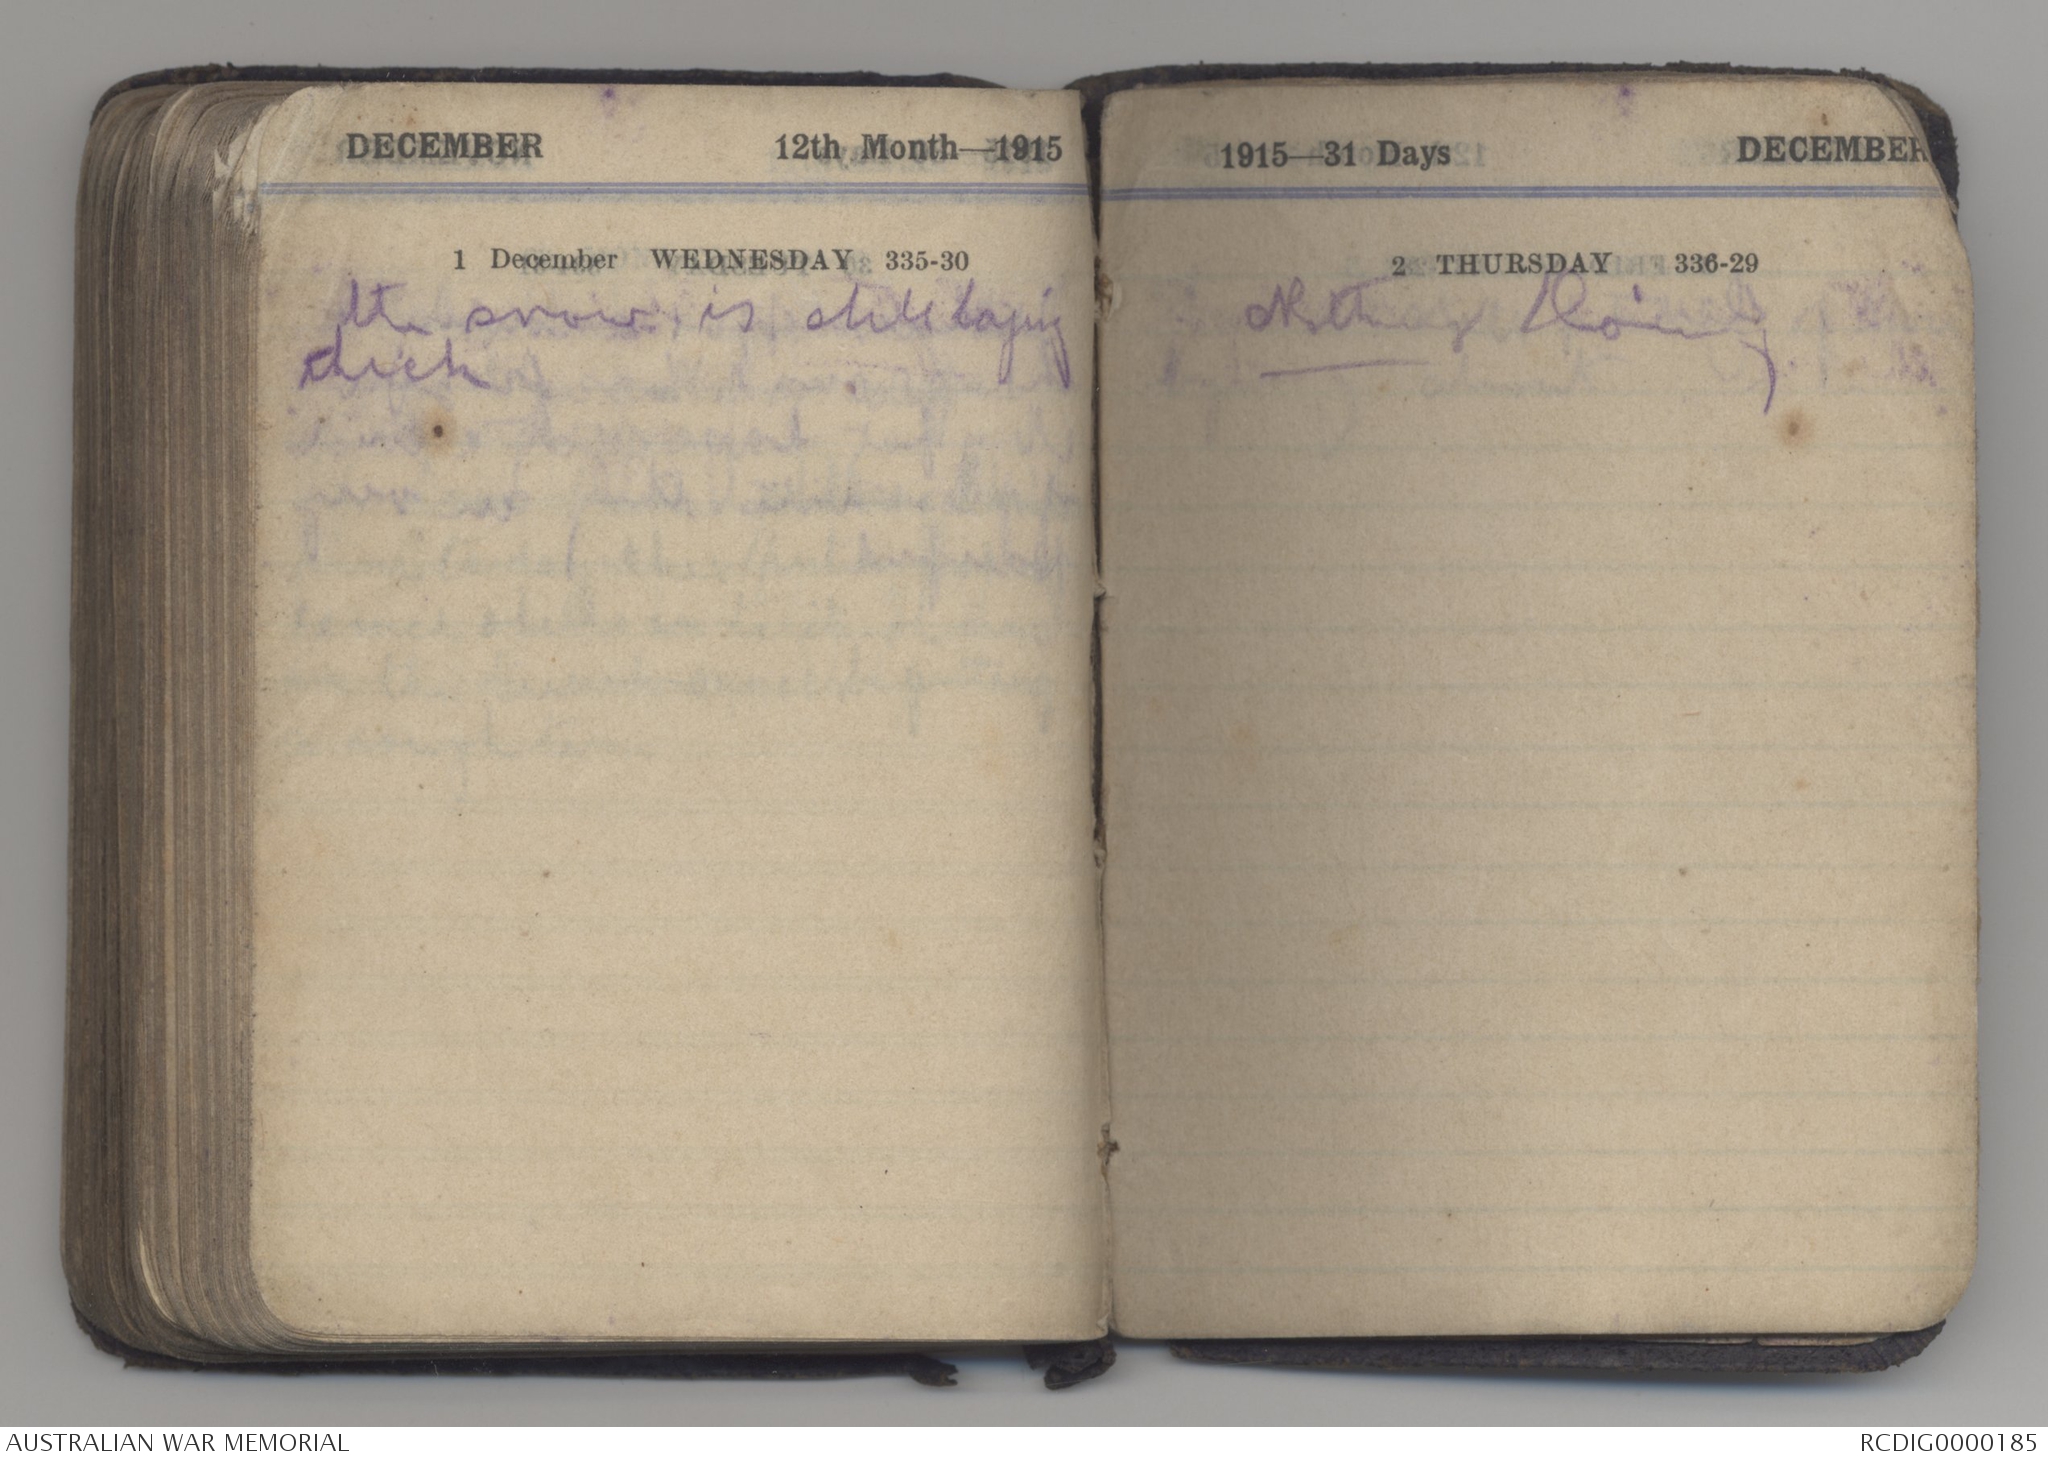 DECEMBER 12th Month—1915
1 December WEDNESDAY 335-30
The snow is still laying
thick
1915—31 Days DECEMBER
2 THURSDAY 336-29
Nothing Doing
AUSTRALIAN WAR MEMORIAL RCDIG0000185